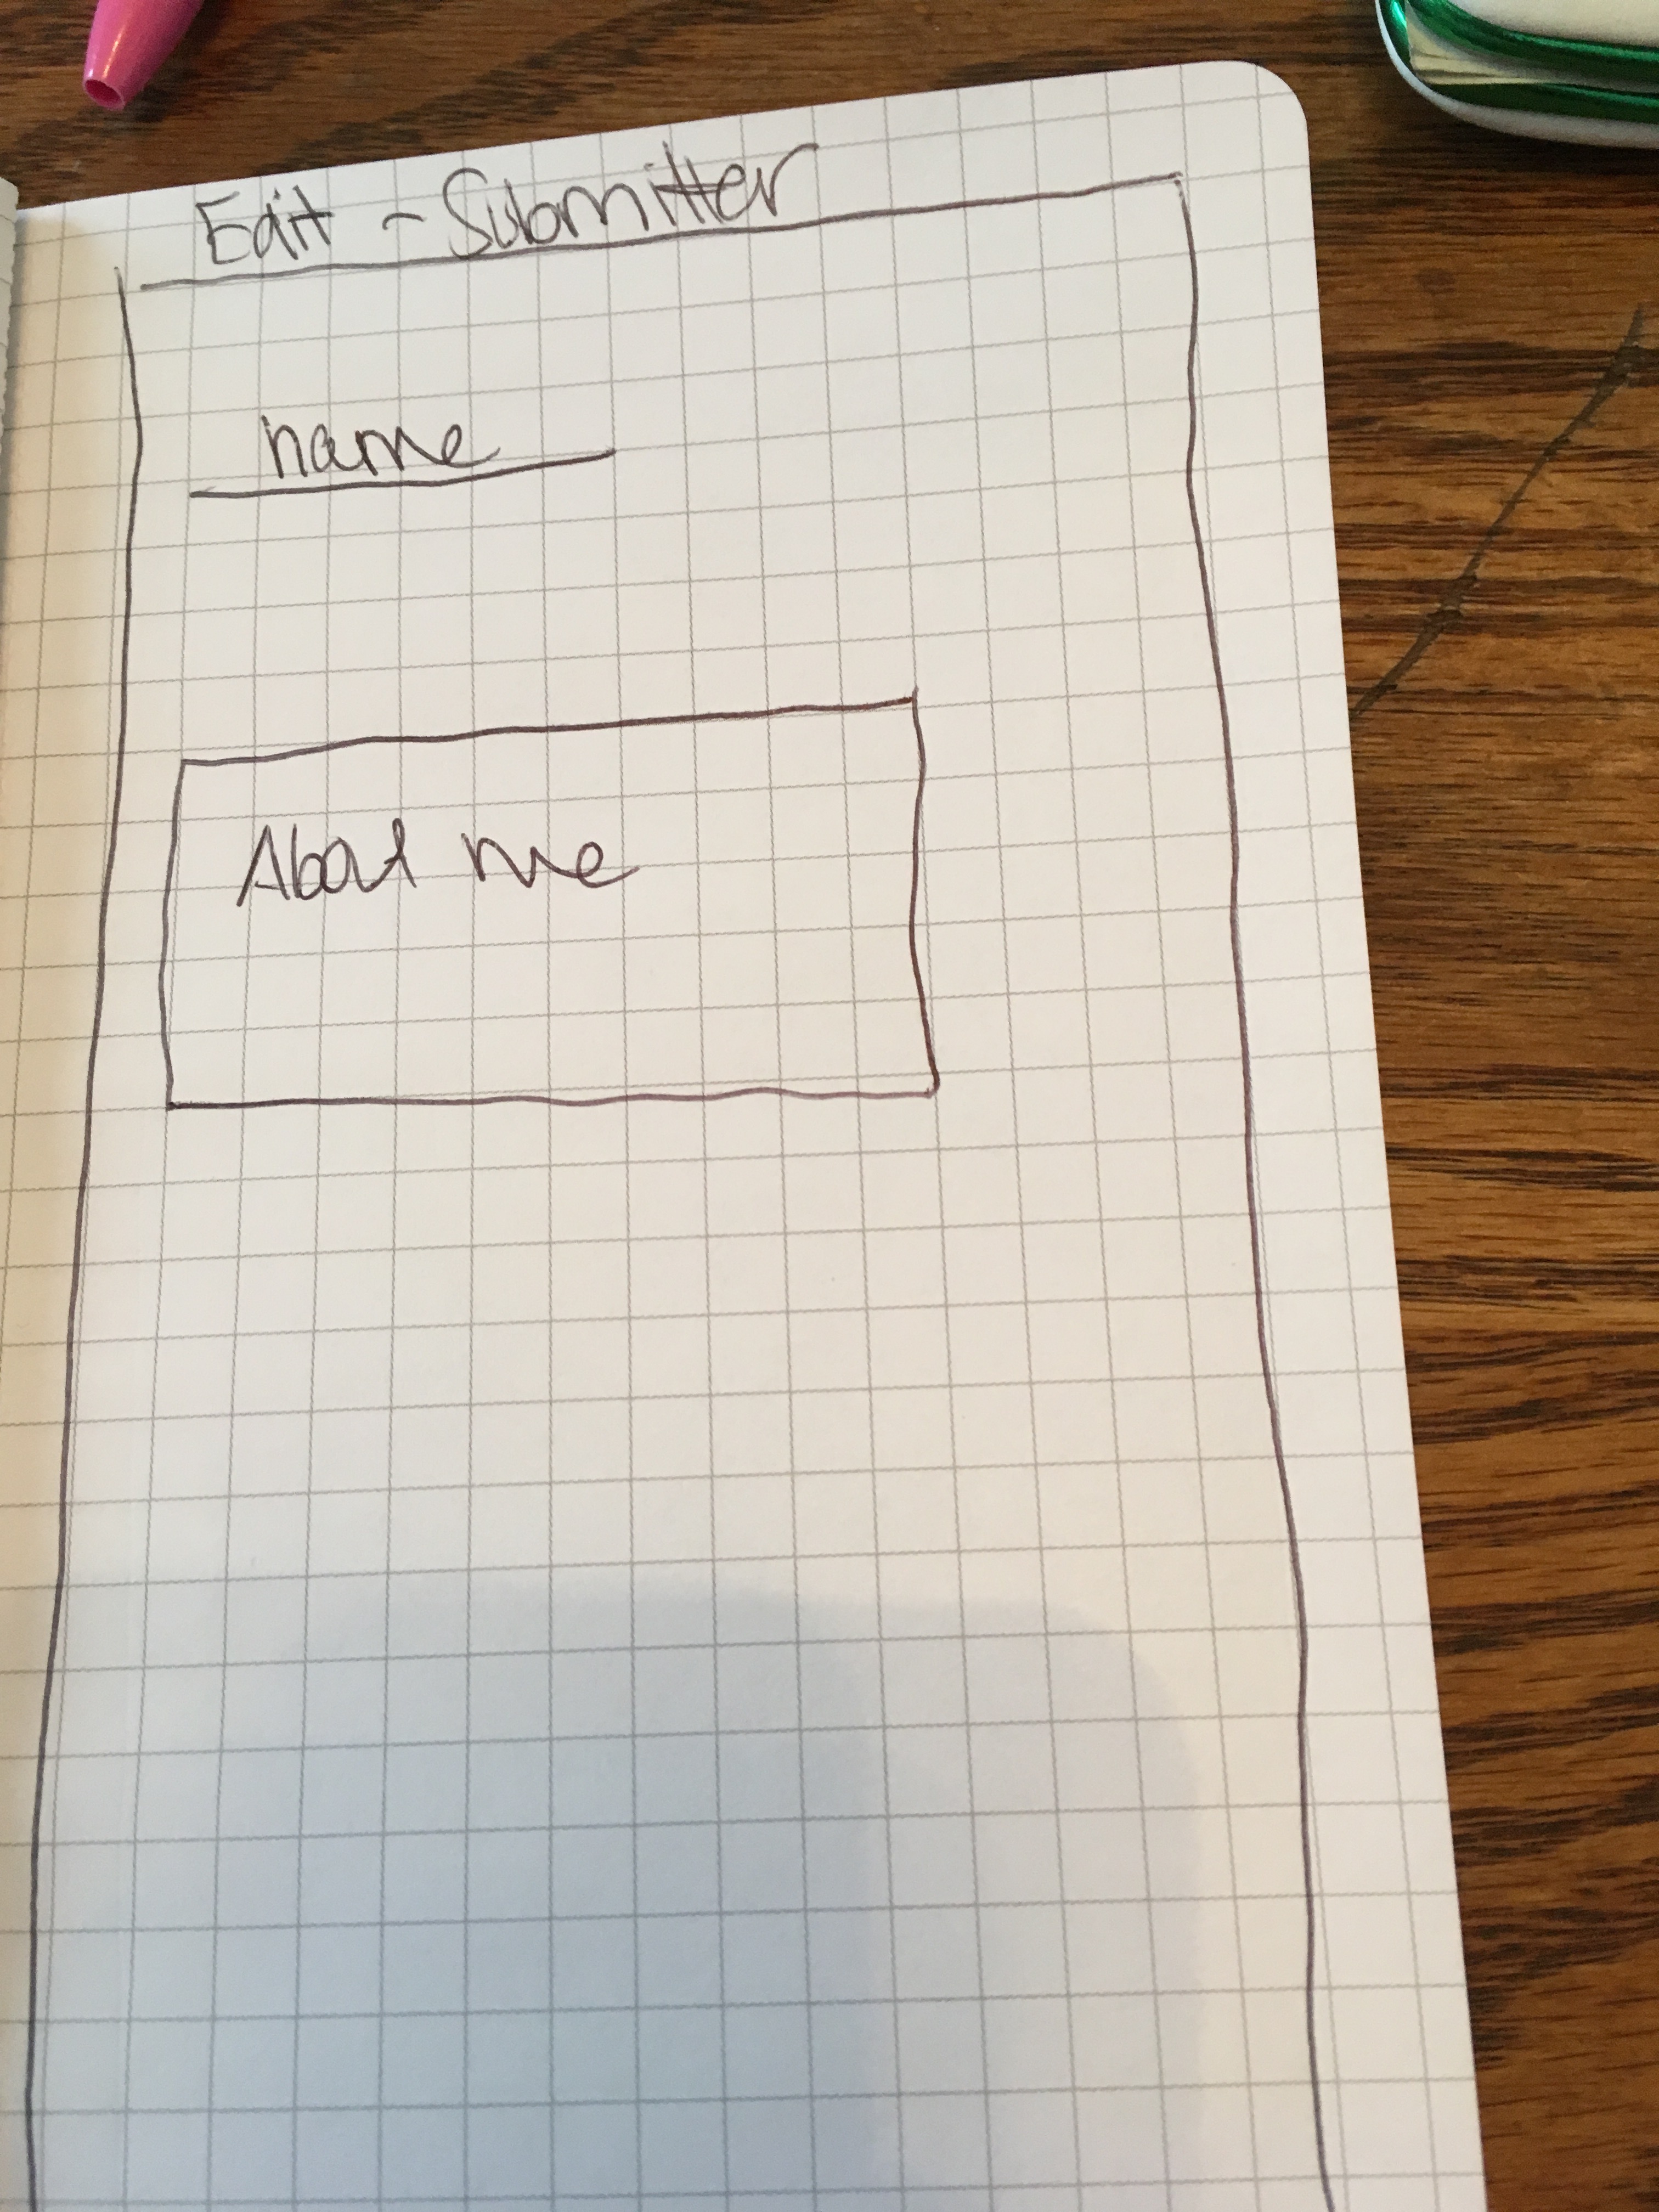 Edit - Submitter
name
About me